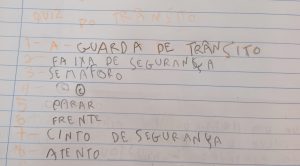 QUIZ DO TRÂNSITO
1 - A - GUARDA DE TRÂNSITO
2 FAIXA DE SEGURANSA
3 SEMÁFORO
4 C
5 PARAR
6 FRENTE
7 - CINTO DE SEGURANÇA
8 - ATENTO